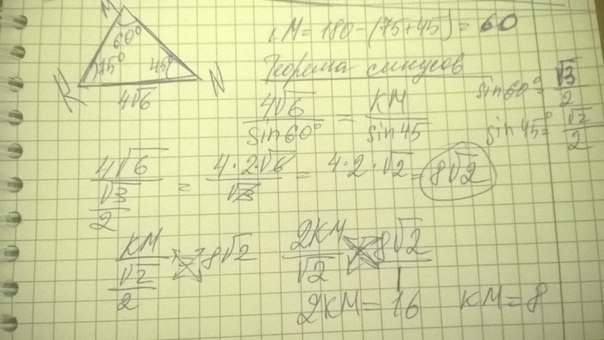 M
60°
75° 45°
K N
4√6
∠M = 180 - (75+45) = 60
Теорема синусов
4√6/sin60° = KM/sin45
sin60° = √3/2
sin45° = √2/2
4√6/(√3/2) = 4·2·√6/√3 = 4·2·√2 = 8√2
KM/(√2/2) = 8√2 2KM/√2 = 8√2/1
2KM = 16 KM = 8